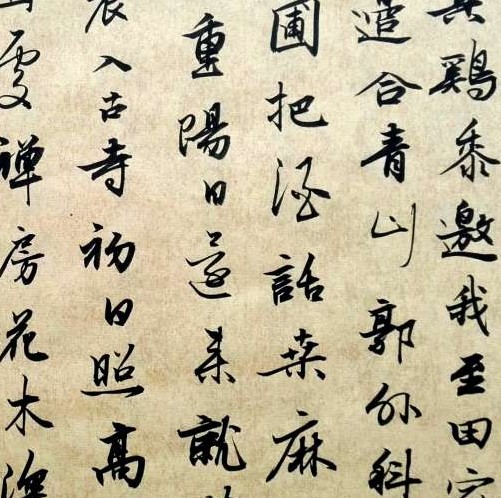 鷄黍邀我至田
合青山郭外斜
圃把酒話桒麻
重陽日還来就
入古寺初日照高
處禅房花木深